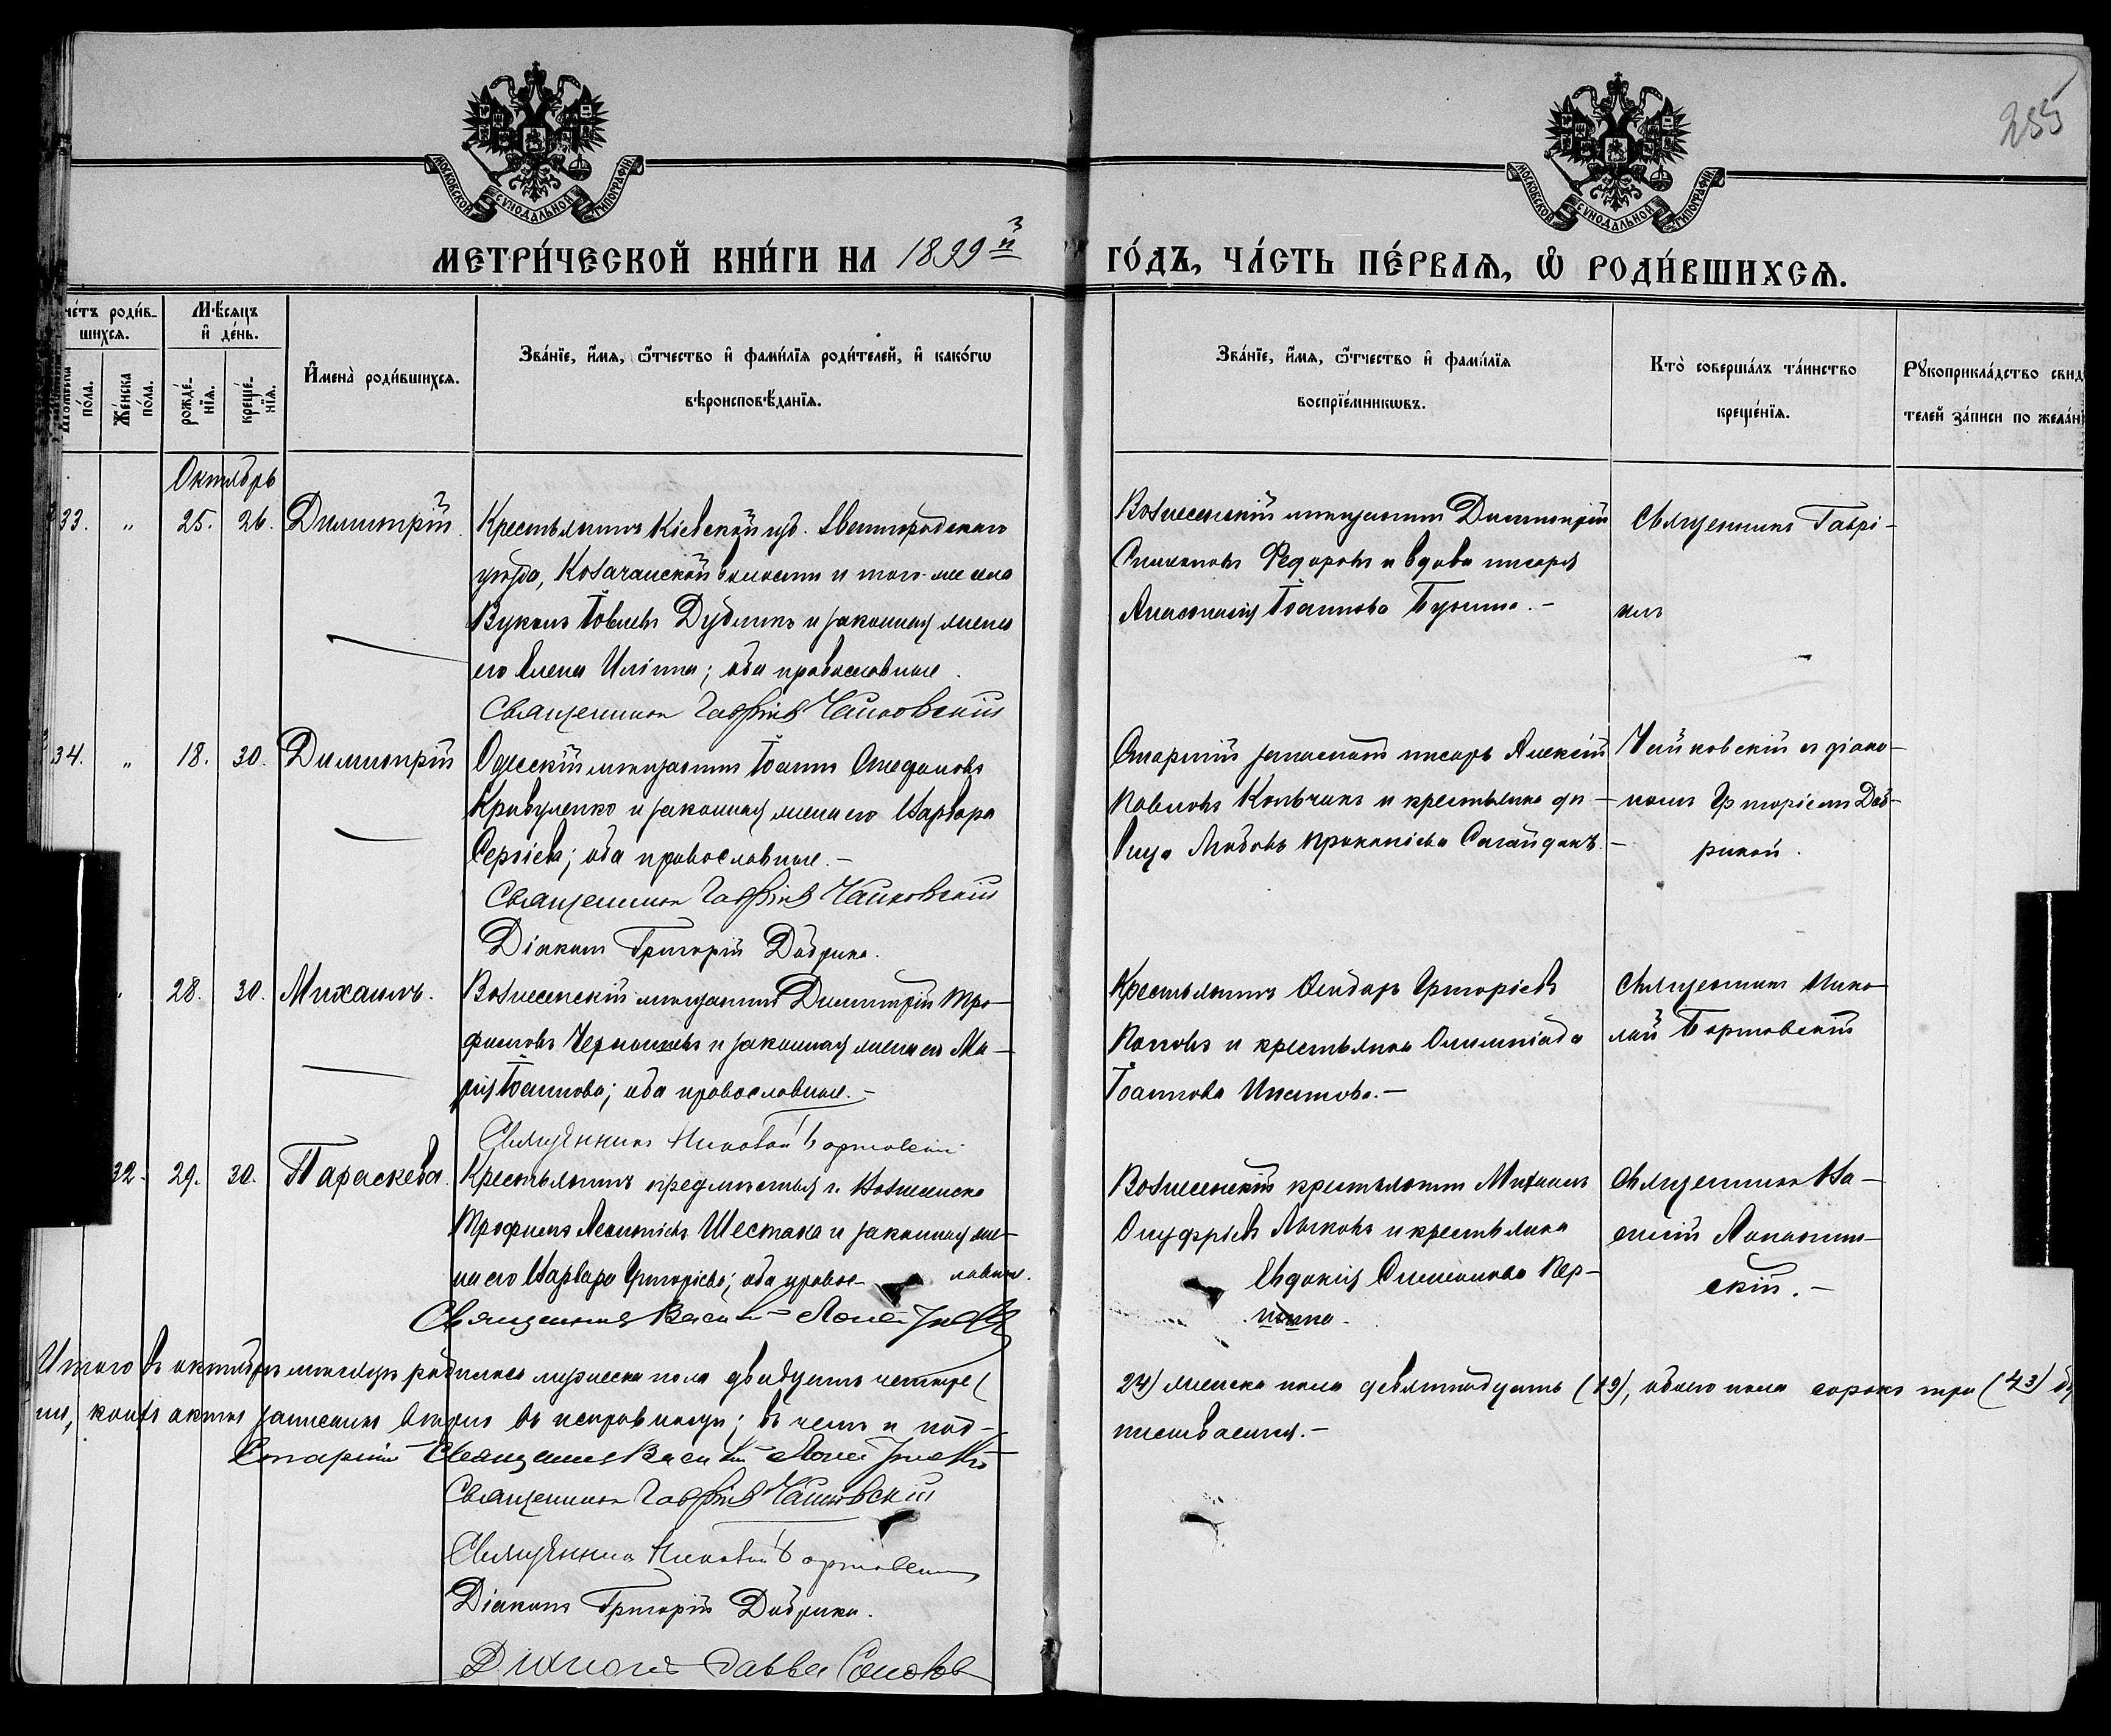 255
МОСКОВСКОЙ СѴНОДАЛЬНОЙ ТИПОГРАФІИ
МОСКОВСКОЙ СѴНОДАЛЬНОЙ ТИПОГРАФІИ
МЕТРИ́ЧЕСКОЙ КНИ́ГИ НА 1899й
ГО́ДЪ, ЧА́СТЬ ПЕ́РВАѦ, Ѡ҆ РОДИ́ВШИХСѦ.
че́тъ роди́в-
шихсѧ.
Мѣ́сѧцъ
и҆ де́нь.
по́ла.
Же́нска
по́ла.
рожде́-
нїѧ.
креще́-
нїѧ.
И҆мена̀ роди́вшихсѧ.
Зва́нїе, и҆́мѧ, ѻ҆́тчество и҆ фами́лїѧ роди́телей, и҆ како́гѡ
вѣроисповѣ́данїѧ.
Зва́нїе, и҆́мѧ, ѻ҆́тчество и҆ фами́лїѧ
воспрїе́мникѡвъ.
Кто̀ соверша́лъ та́инство
креще́нїѧ.
Рꙋкоприкла́дство свид
телей за́писи по жела́н
Октябрь
33. " 25. 26. Димитрій.
Крестьянинъ Кіевской губ. Звенигородскаго
уѣзда, Козачанской волости и того-же села
Вуколъ Іовлевъ Дубликъ и законная жена
его Елена Иліина; оба православные.
Священникъ Гавріилъ Чайковскій
Вознесенскій мѣщанинъ Димитрій
Симеоновъ Федоровъ и вдова писаря
Анастасія Іоаннова
Священникъ Гаврі-
илъ
34. " 18. 30. Димитрій
Одесскій мѣщанинъ Іоаннъ Стефановъ
Кривуленко и законная жена его Варвара
Сергіева; оба православные.-
Священникъ Гавріилъ Чайковскій
Діаконъ Григорій Добрика.
Старшій запасный писарь Алексій
Павловъ Кольчикъ и крестьянка дѣ-
вица Любовь Прокопіева Сагайдакъ.-
Чайковскій съ діако-
номъ Григоріемъ Доб-
рикой.
" 28. 30. Михаилъ.
Вознесенскій мѣщанинъ Димитрій Тро-
фимовъ и законная жена его Ма-
рія Іоаннова; оба православные.-
Священникъ Николай Бортовскій
Крестьянинъ Григоріевъ
Поповъ и крестьянка Олимпіада
Іоаннова Ипатова.-
Священникъ Нико-
лай Бортовскій
32. 29. 30. Параскева
Крестьянинъ предмѣстья г. Вознесенска
Трофимъ Леонтіевъ Шестака и законная же-
на его Варвара Григоріева; оба правос- лавные.
Священникъ Василій
Вознесенскій крестьянинъ Михаилъ
Онуфріевъ и крестьянка
Евдокія Симеонова
Священникъ Ва-
силій
скій.-
Итого въ октябрѣ мѣсяцѣ родилось мужеска пола двадцать четыре (
24) женска пола девятнадцать (19), обоего пола сорокъ три (43)
коихъ актъ записанъ вѣрно въ исправности; въ чемъ и под-
писываемся.-
Старшій Священникъ Василій
Священникъ Гавріилъ Чайковскій
Священникъ Николай Бортовскій
Діаконъ Григорій Добрика.
Діаконъ Савва